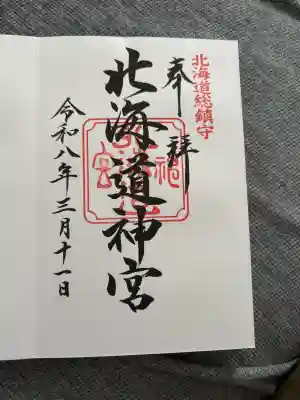 北海道総鎮守
奉拝
北海道神宮
令和八年三月十一日